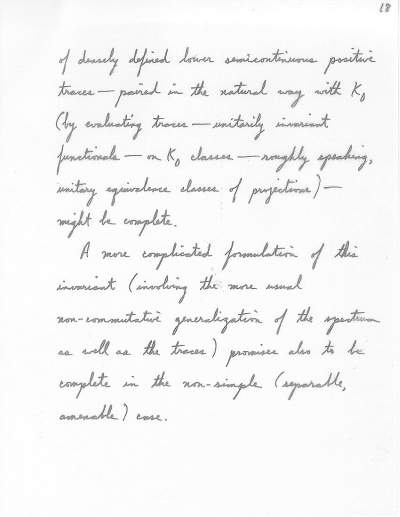 18
of densely defined lower semicontinuous positive
traces — paired in the natural way with K₀
(by evaluating traces — unitarily invariant
functionals — on K₀ classes — roughly speaking,
unitary equivalence classes of projections) —
might be complete.
A more complicated formulation of this
invariant (involving the more usual
non-commutative generalization of the spectrum
as well as the traces) promises also to be
complete in the non-simple (separable,
amenable) case.